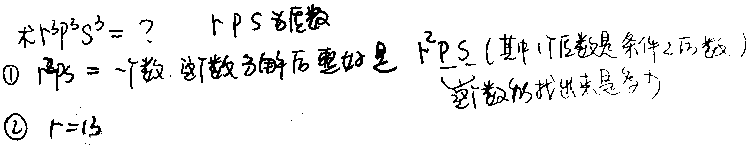 求r³p³s³=? r p s 为质数
① r²ps = 一个数.这个数分解后要好是 r²ps (其中1个质数是条件2的数)
这个数能找出来是多少
② r=13